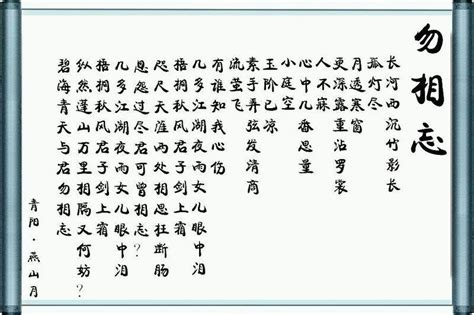 勿相忘
长河西沉竹影长
孤灯尽
月透寒窗
更深露重沾罗裳
人不寐
心中几番思量
小庭空
玉阶已凉
素手弄弦发清商
流萤飞
有谁知我心伤
几多江湖夜雨女儿眼中泪
梧桐秋风君子剑上霜
咫尺天涯两处相思枉断肠
恩怨过尽君可曾相忘?
几多江湖夜雨女儿眼中泪
梧桐秋风君子剑上霜
纵然蓬山万里相隔又何妨?
碧海青天与君勿相忘
青阳·燕山月